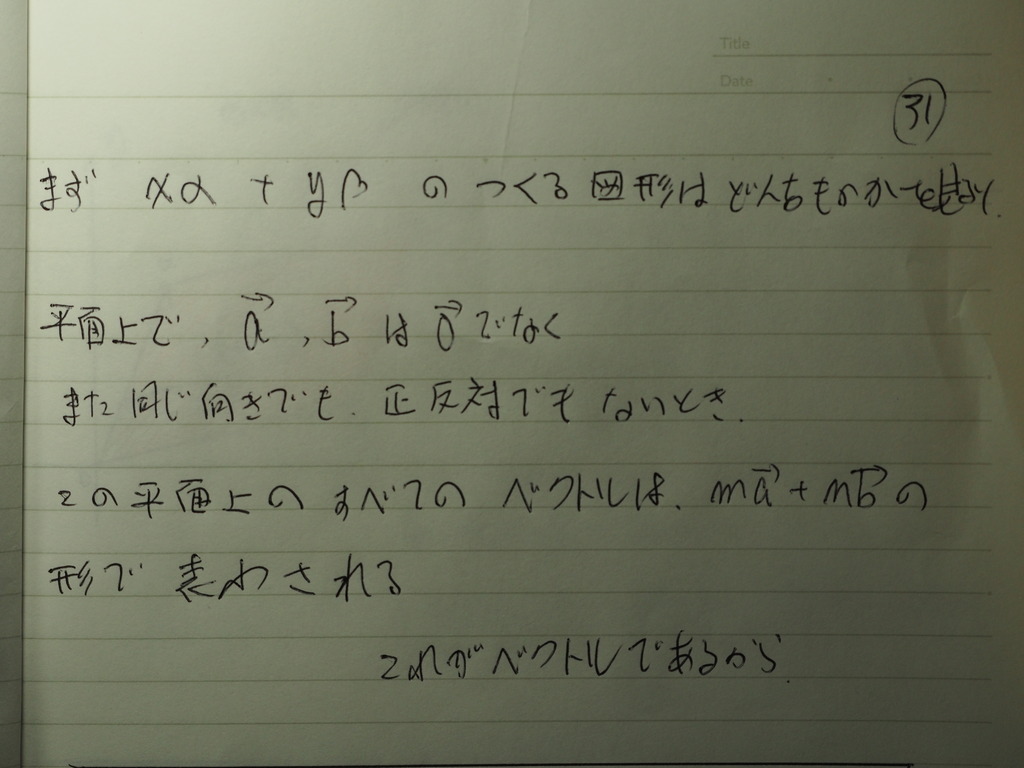 Title
Date
31
まず xα + yβ のつくる図形はどんなものか
平面上で, a⃗, b⃗ は 0⃗ でなく
また同じ向きでも. 正反対でもないとき.
この平面上のすべてのベクトルは. ma⃗ + nb⃗ の
形で表わされる
これがベクトルであるから.